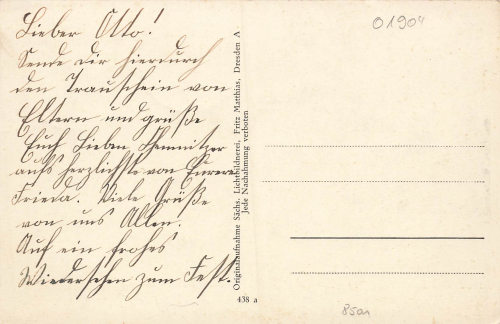 Lieber Otto!
Sende dir hierdurch
den Trauschein von
Eltern und grüße
Euch Lieben Chemnitzer
aufs herzlichste von Eurer
Frieda. Viele Grüße
von uns Allen.
Auf ein frohes
Wiedersehen zum Fest.
Originalaufnahme Sächs. Lichtbildnerei, Fritz Matthias, Dresden A
Jede Nachahmung verboten
438 a
01904